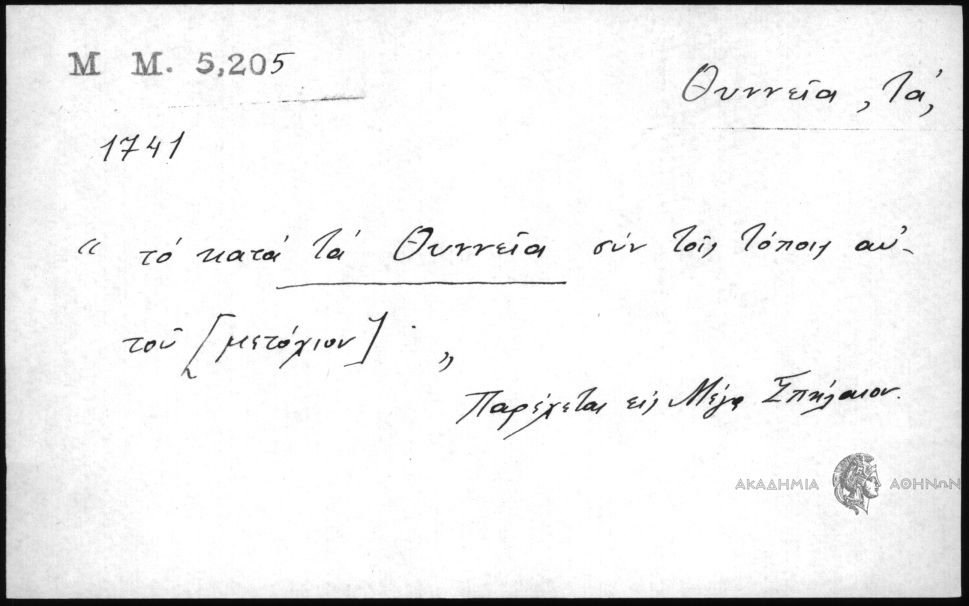 M M. 5,205
Θυννεῖα, τά,
1741
“ τό κατά τά Θυννεῖα σύν τοῖς τόποις αὐ-
τοῦ [μετόχιον] . „
Παρέχεται εἰς Μέγα Σπήλαιον.
ΑΚΑΔΗΜΙΑ ΑΘΗΝΩΝ